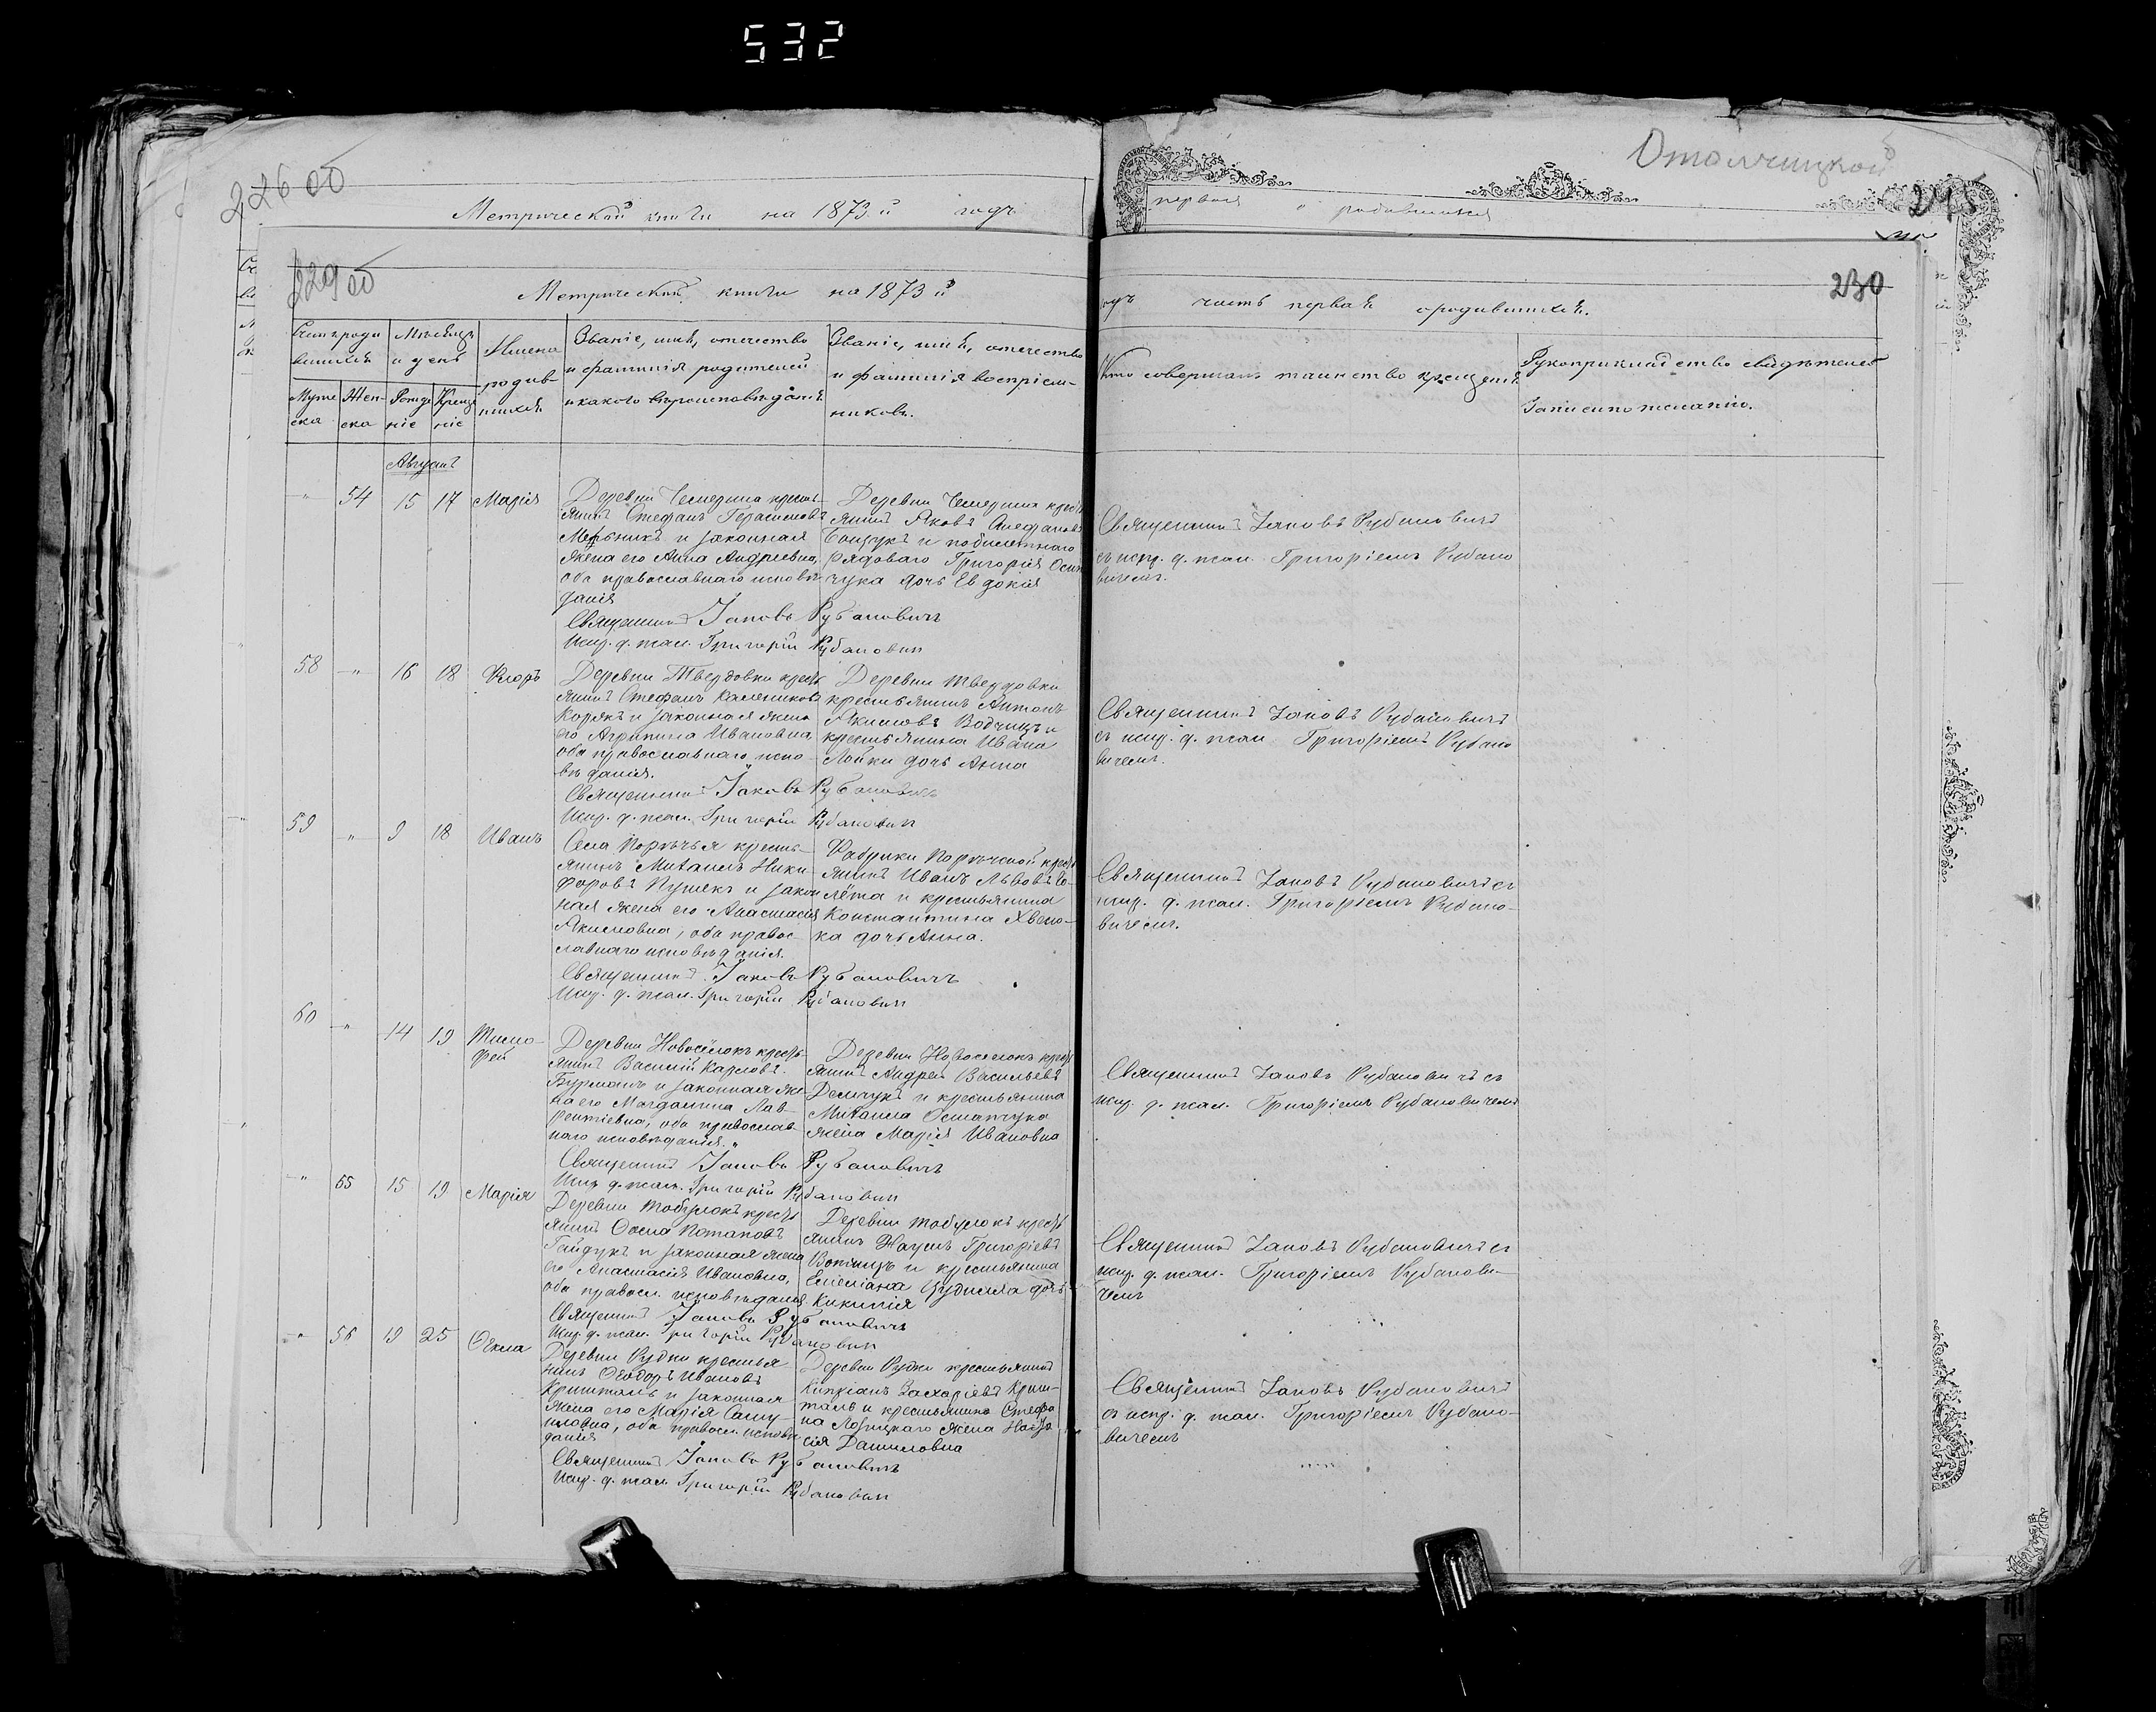 532
226 об
Отолчицкой
245
Метрической книги на 1873й годъ
первая о родившихся
229 об
230
Метрической книги на 1873й
годъ часть первая о родившихся.
Счетъ роди
вшихся
Мѣсяцъ
и день
Имена
родив-
шихся
Званіе, имя, отчество
и фамилія родителей
и какого вѣроисповѣданія
Званіе, имя, отчество
и фамилія воспріем-
никовъ.
Кто совершалъ таинство крещенія
Рукоприкладство свидѣтелей
записи по желанію.
Муже
ска
Жен-
ска
Рожде
ніе
Креще
ніе
Августъ
" 54 15 17 Марія
Деревни Чемерина кресть-
янинъ Стефанъ Герасимовъ
Мельникъ и законная
жена его Анна Андреевна,
оба православнаго исповѣ-
данія
Священникъ Іаковъ Рубановичъ
Исп. д. псал. Григорій Рубанович
Деревни Чемерина кресть
янинъ Яковъ Стефановъ
и побилетнаго
рядоваго Григорія Осип
чука дочь Евдокія
Священникъ Іаковъ Рубановичъ
съ испр. д. псал. Григоріемъ Рубано
вичемъ.
58 " 16 18 Флоръ
Деревни Твердовки кресть
янинъ Стефанъ Калениковъ
Корякъ и законная жена
его Агрипина Ивановна
оба православнаго испо
вѣданія.
Священникъ Іаковъ Рубановичъ
Испр. д. псал. Григорій Рубанович
Деревни Твердовки
крестьянинъ Антонъ
Якимовъ Водчицъ и
крестьянина Ивана
Лойки дочь Анна
Священникъ Іаковъ Рубановичъ
съ испр. д. псал. Григоріемъ Рубано
вичемъ.
59 " 9 18 Иванъ
Села Порѣчья кресть-
янинъ Михаилъ Ники-
форовъ Пушекъ и закон
ная жена его Анастасія
Якимовна, оба правос-
лавнаго исповѣданія.
Священникъ Іаковъ Рубановичъ
Испр. д. псал. Григорій Рубанович
Фабрики Порѣчской кресть
янинъ Иванъ Львовъ
и крестьянина
Константина Хвено-
ка дочь Анна.
Священникъ Іаковъ Рубановичъ съ
испр. д. псал. Григоріемъ Рубано-
вичемъ.
60 " 14 19 Тимо-
фей
Деревни Новосёлокъ кресть-
янинъ Василій Карповъ
Бурманъ и законная же-
на его Магдалина Лав-
рентіевна, оба православ-
наго исповѣданія.
Священникъ Іаковъ Рубановичъ
Испр. д. псал. Григорій Рубанович
Деревни Новоселокъ кресть
янинъ Андрей Васильевъ
Демчукъ и крестьянина
Михаила Остапчука
жена Марія Ивановна
Священникъ Іаковъ Рубановичъ съ
испр. д. псал. Григоріемъ Рубановичемъ
" 55 15 19 Марія
Деревни Тобулокъ кресть
янинъ Ѳома Потаповъ
Гайдукъ и законная жена
его Анастасія Ивановна,
оба правосл. исповѣданія
Священникъ Іаковъ Рубановичъ
Испр. д. псал. Григорій Рубанович
Деревни Тобулокъ кресть
янинъ Наумъ Григоріевъ
Вотчицъ и крестьянина
Емеліана дочь
Киликія
Священникъ Іаковъ Рубановичъ съ
испр. д. псал. Григоріемъ Рубанови-
чемъ
" 56 19 25 Ѳекла
Деревни Рудки крестья
нинъ Ѳеодоръ Ивановъ
Кришталь и законная
жена его Марія Саму-
иловна, оба правосл. исповѣ
данія
Священникъ Іаковъ Рубановичъ
Испр. д. псал. Григорій Рубанович
Деревни Рудки крестьянинъ
Кипріанъ Захаріевъ Криш-
таль и крестьянина Стефа
на Лозицкаго жена Наста
сія Даниловна
Священникъ Іаковъ Рубановичъ
съ испр. д. псал. Григоріемъ Рубано-
вичемъ